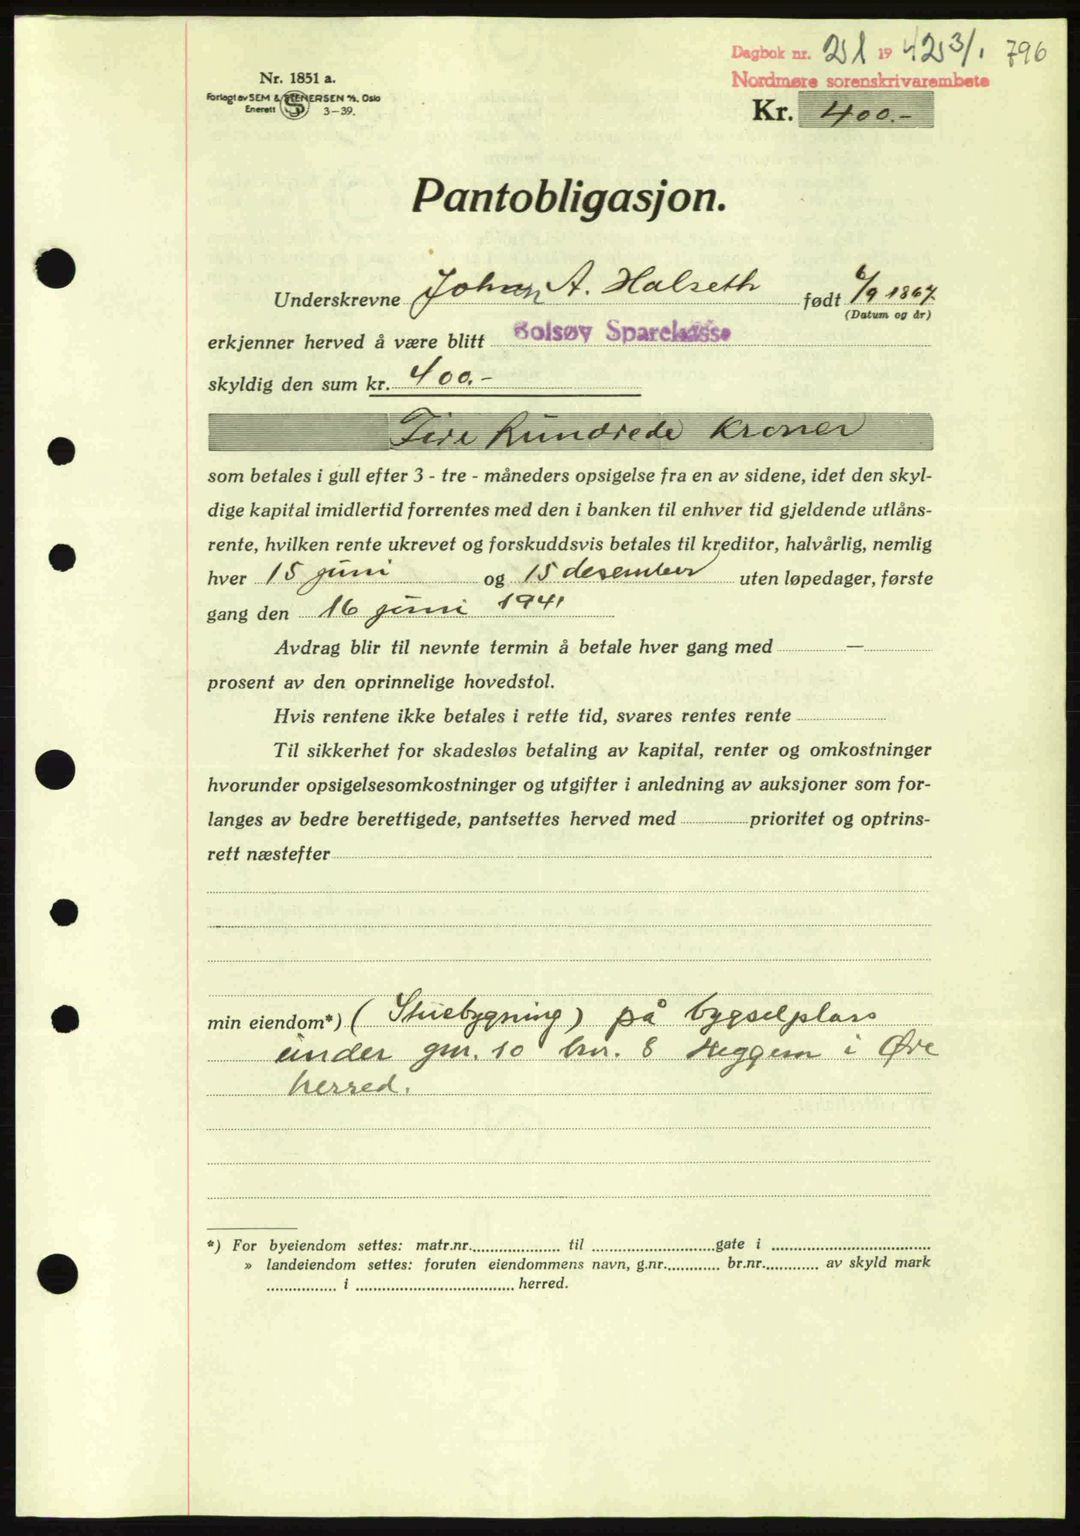 Dagbok nr. 21 1942 3/1. 796
Nordmøre sorenskrivarembete
Nr. 1851 a.
Forlagt av SEM & STENERSEN A/S, Oslo
Enerett 3-39.
Kr. 400.-
Pantobligasjon.
Underskrevne Johan A. Halseth født 6/9 1867.
(Datum og år)
erkjenner herved å være blitt Bolsøy Sparekasse
skyldig den sum kr. 400.-
Fire hundrede kroner
som betales i gull efter 3 - tre - måneders opsigelse fra en av sidene, idet den skyl-
dige kapital imidlertid forrentes med den i banken til enhver tid gjeldende utlåns-
rente, hvilken rente ukrevet og forskuddsvis betales til kreditor, halvårlig, nemlig
hver 15 juni og 15 desember uten løpedager, første
gang den 16 juni 1941
Avdrag blir til nevnte termin å betale hver gang med —
prosent av den oprinnelige hovedstol.
Hvis rentene ikke betales i rette tid, svares rentes rente
Til sikkerhet for skadesløs betaling av kapital, renter og omkostninger
hvorunder opsigelsesomkostninger og utgifter i anledning av auksjoner som for-
langes av bedre berettigede, pantsettes herved med prioritet og optrins-
rett næstefter
min eiendom*) (Stuebygning) på bygselplass
under gnr. 10 bnr. 8 Heggem i Øre
herred.
*) For byeiendom settes: matr.nr. til gate i
» landeiendom settes: foruten eiendommens navn, g.nr. br.nr. av skyld mark
i herred.